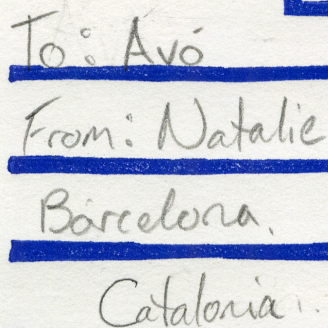 To: Avó
From: Natalie
Barcelona.
Catalonia.